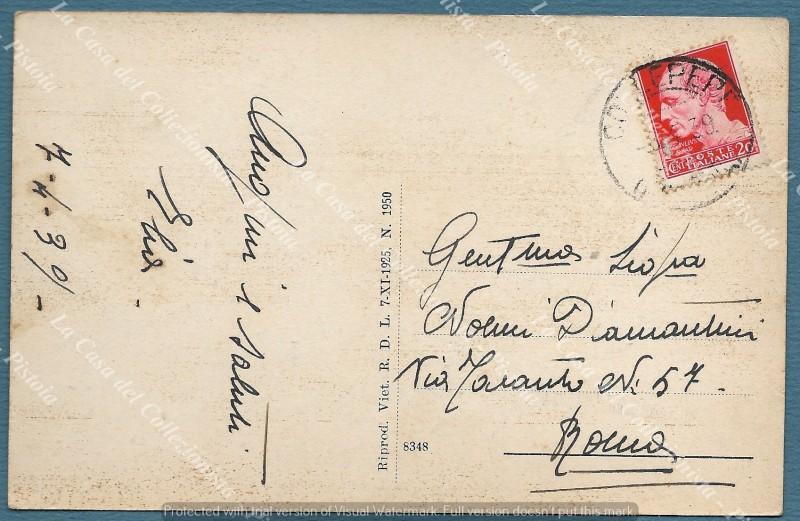 7-4-39-
Auguri e Saluti
Riprod. Viet. R. D. L. 7-XI-1925, N. 1950
8348
POSTE
ITALIANE
CENT 20
Gent.ma Sig.ra
Noemi Diamantini
Via Taranto N. 57.
Roma
La Casa del Collezionista - Pistoia
Protected with trial version of Visual Watermark. Full version doesn't put this mark.